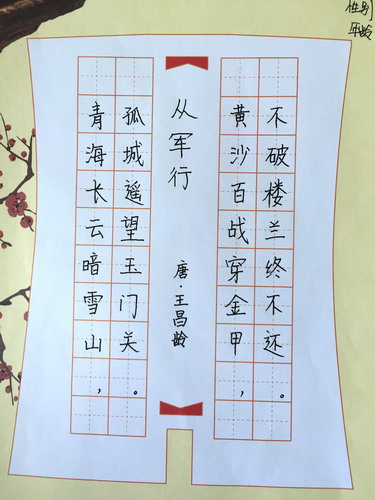 青海长云暗雪山，
孤城遥望玉门关。
从军行
唐·王昌龄
黄沙百战穿金甲，
不破楼兰终不还。
性别
年龄